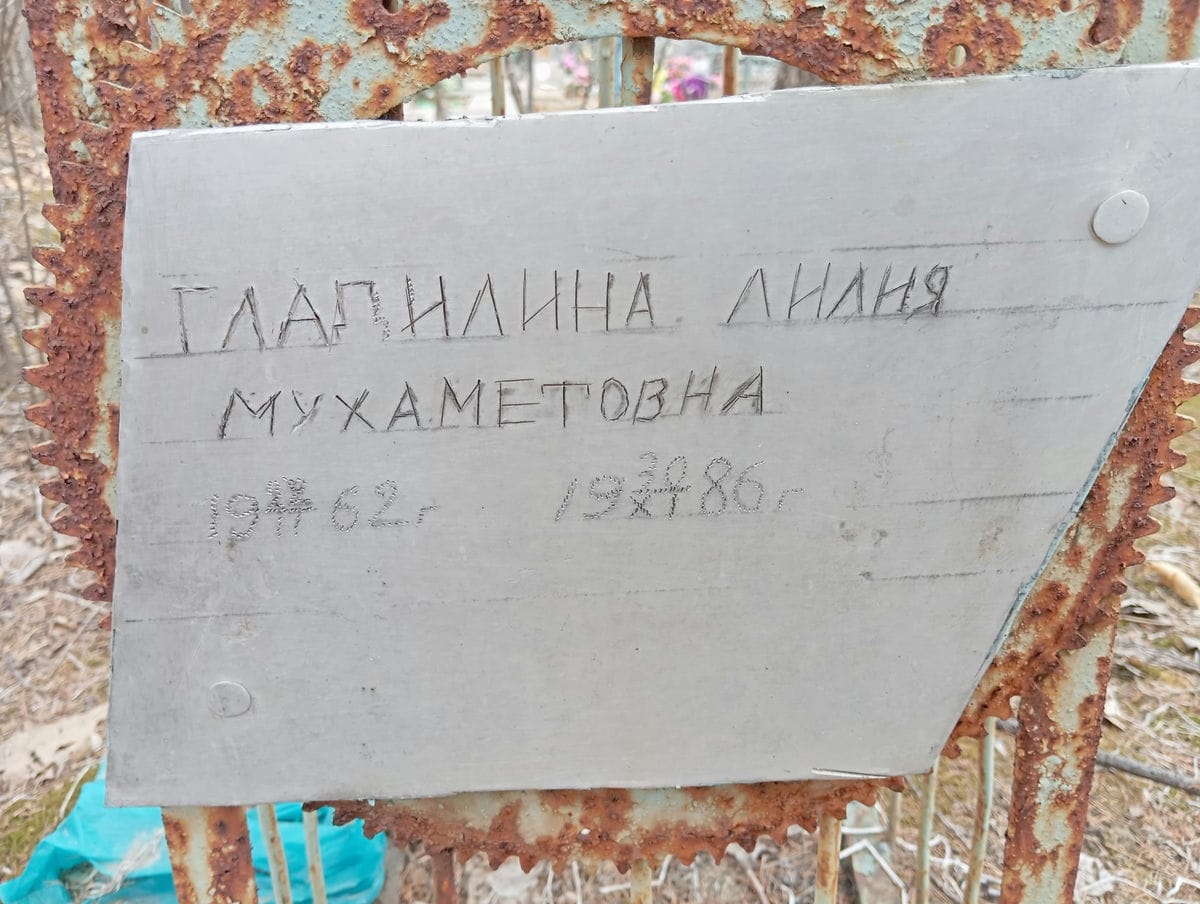 ГЛАПИЛИНА ЛИЛИЯ
МУХАМЕТОВНА
1962г 1986г